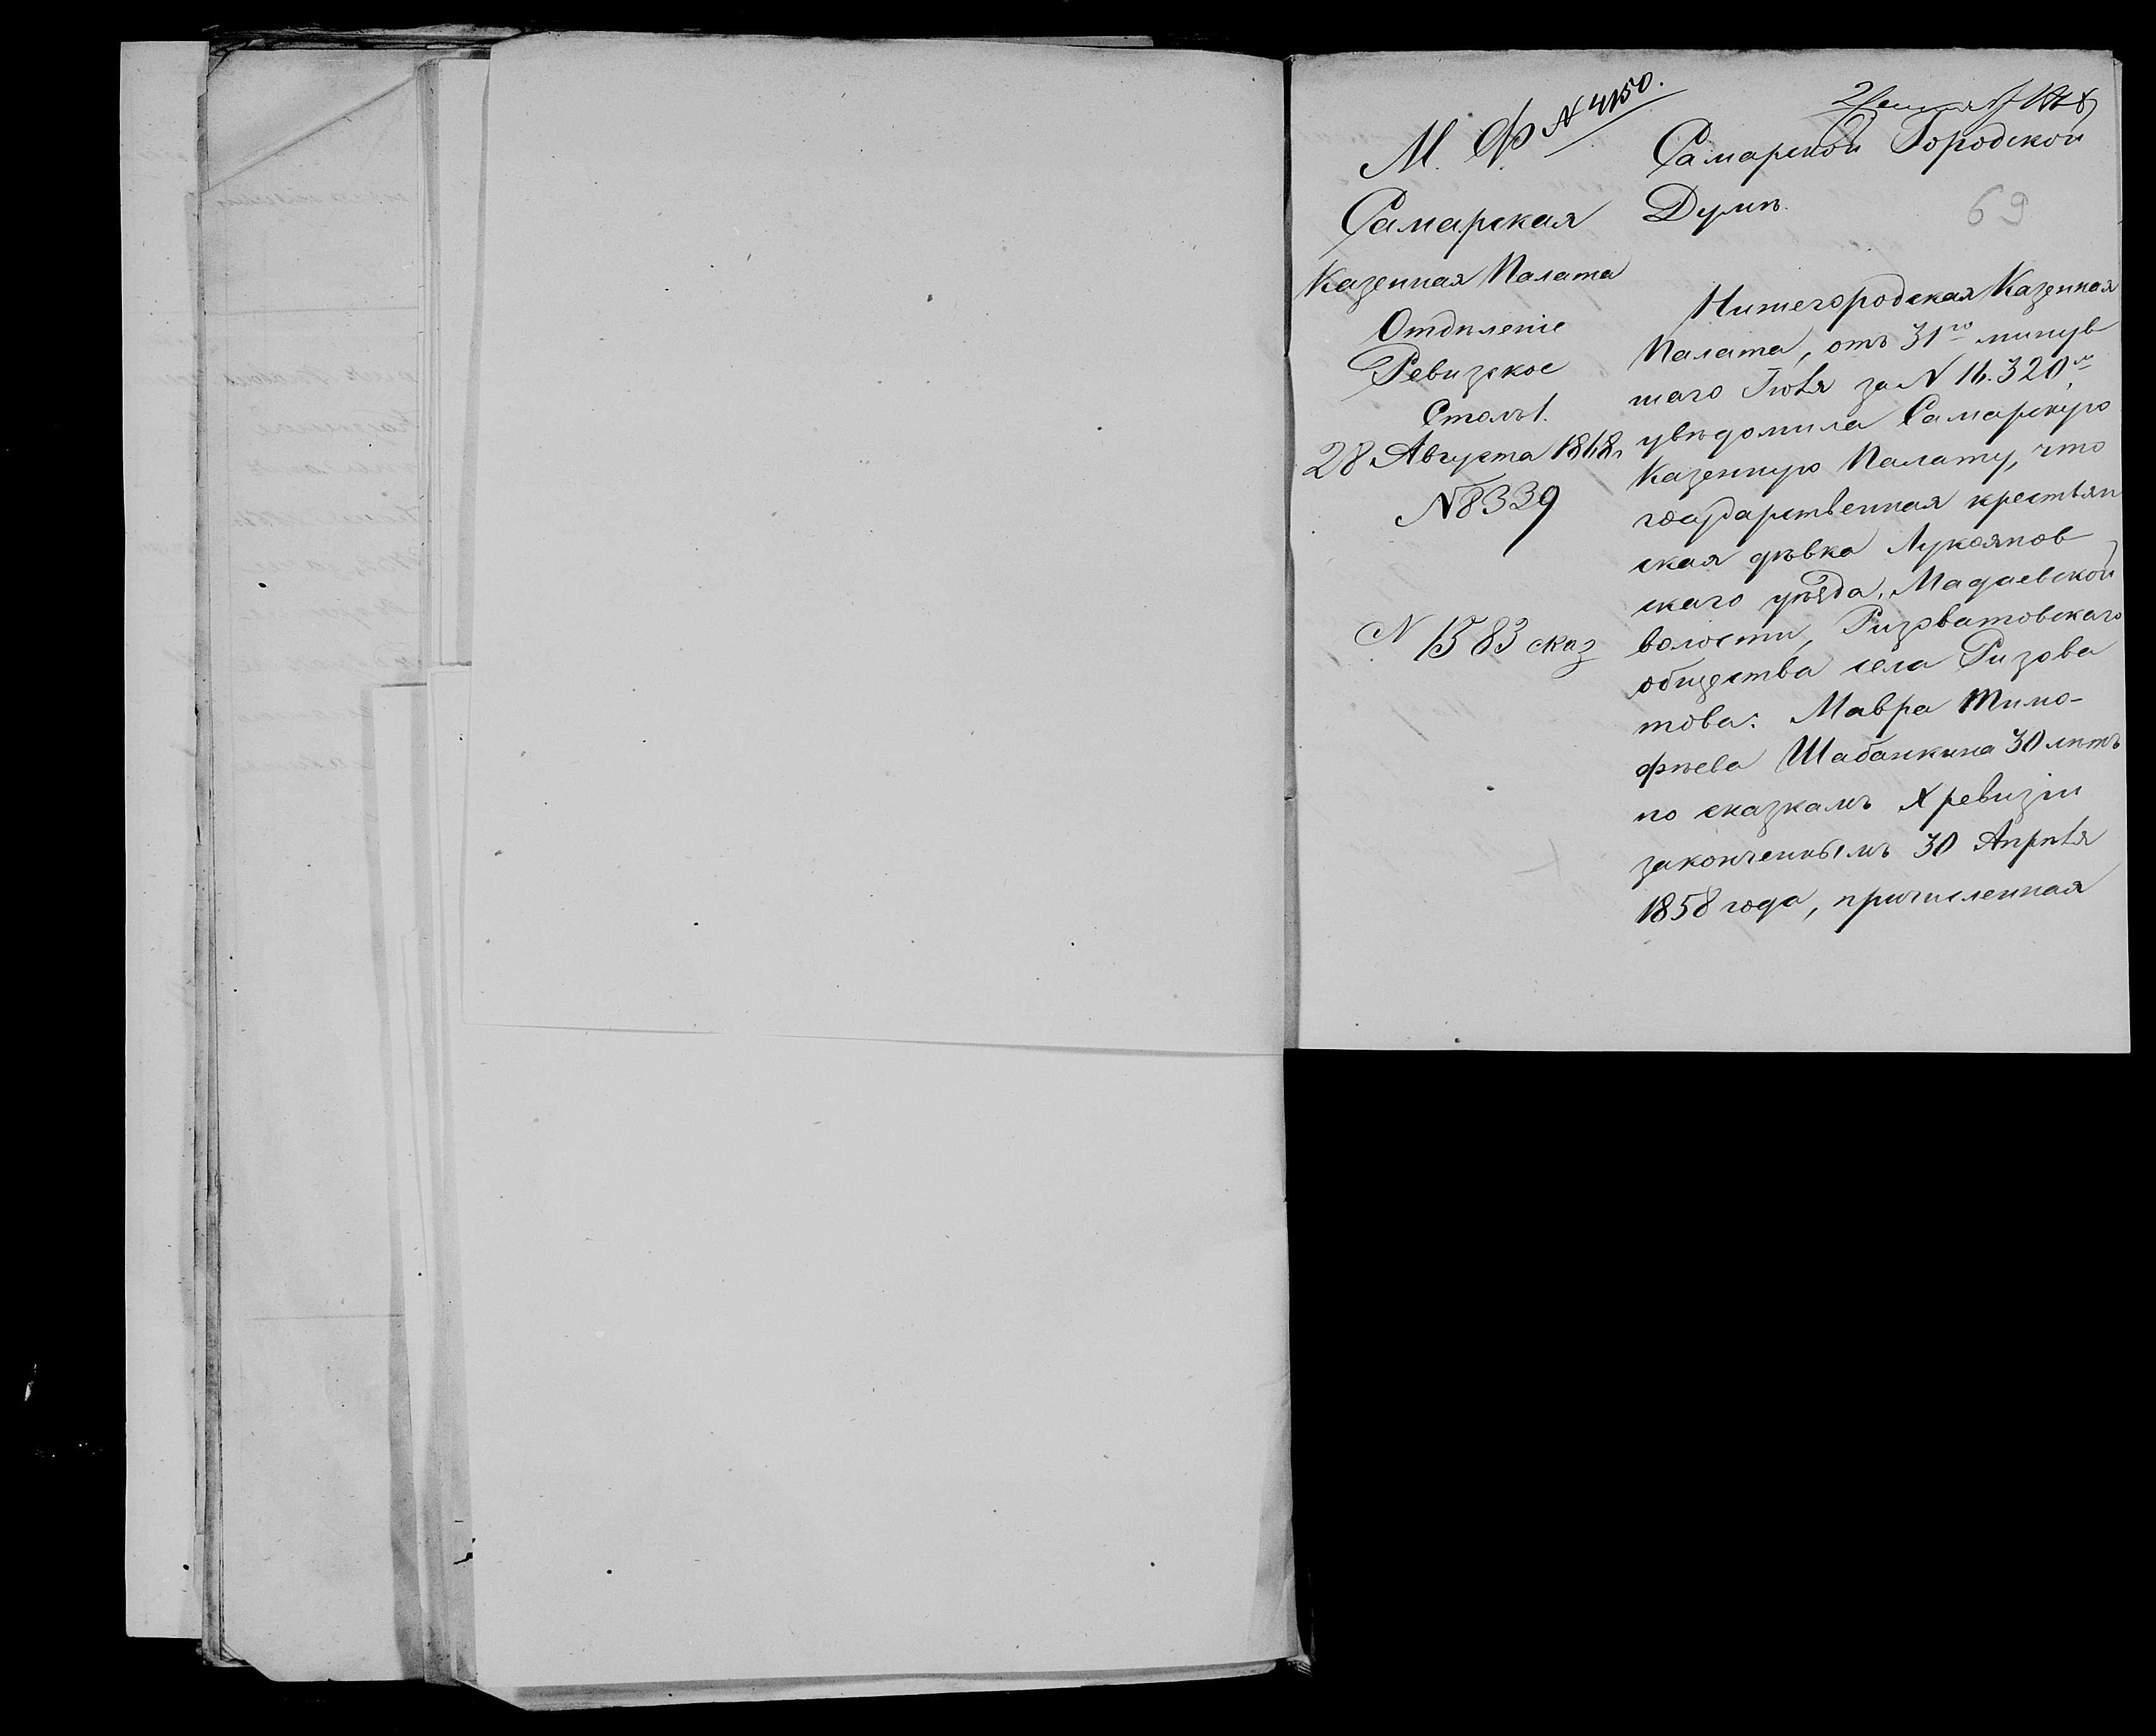 № 4150.
М. Ф.
Самарская
Казенная Палата
Отдѣленіе
Ревизское
Столъ 1.
28 Августа 1868 г
№ 8339
№ 1583 сказ
Самарской Городской
Думѣ.
69
Нижегородская Казенная
Палата, отъ 31го минув
шаго Іюля за № 16.320м
увѣдомила Самарскую
Казенную Палату, что
государственная крестьян
ская дѣвка Лукоянов
скаго уѣзда, Мадаевской
волости, Ризоватовскаго
общества села Ризова
това: Мавра Тимо-
фѣева Шабанкина 30 лѣтъ
по сказкамъ X ревизіи
законченнымъ 30 Апрѣля
1858 года, причисленная